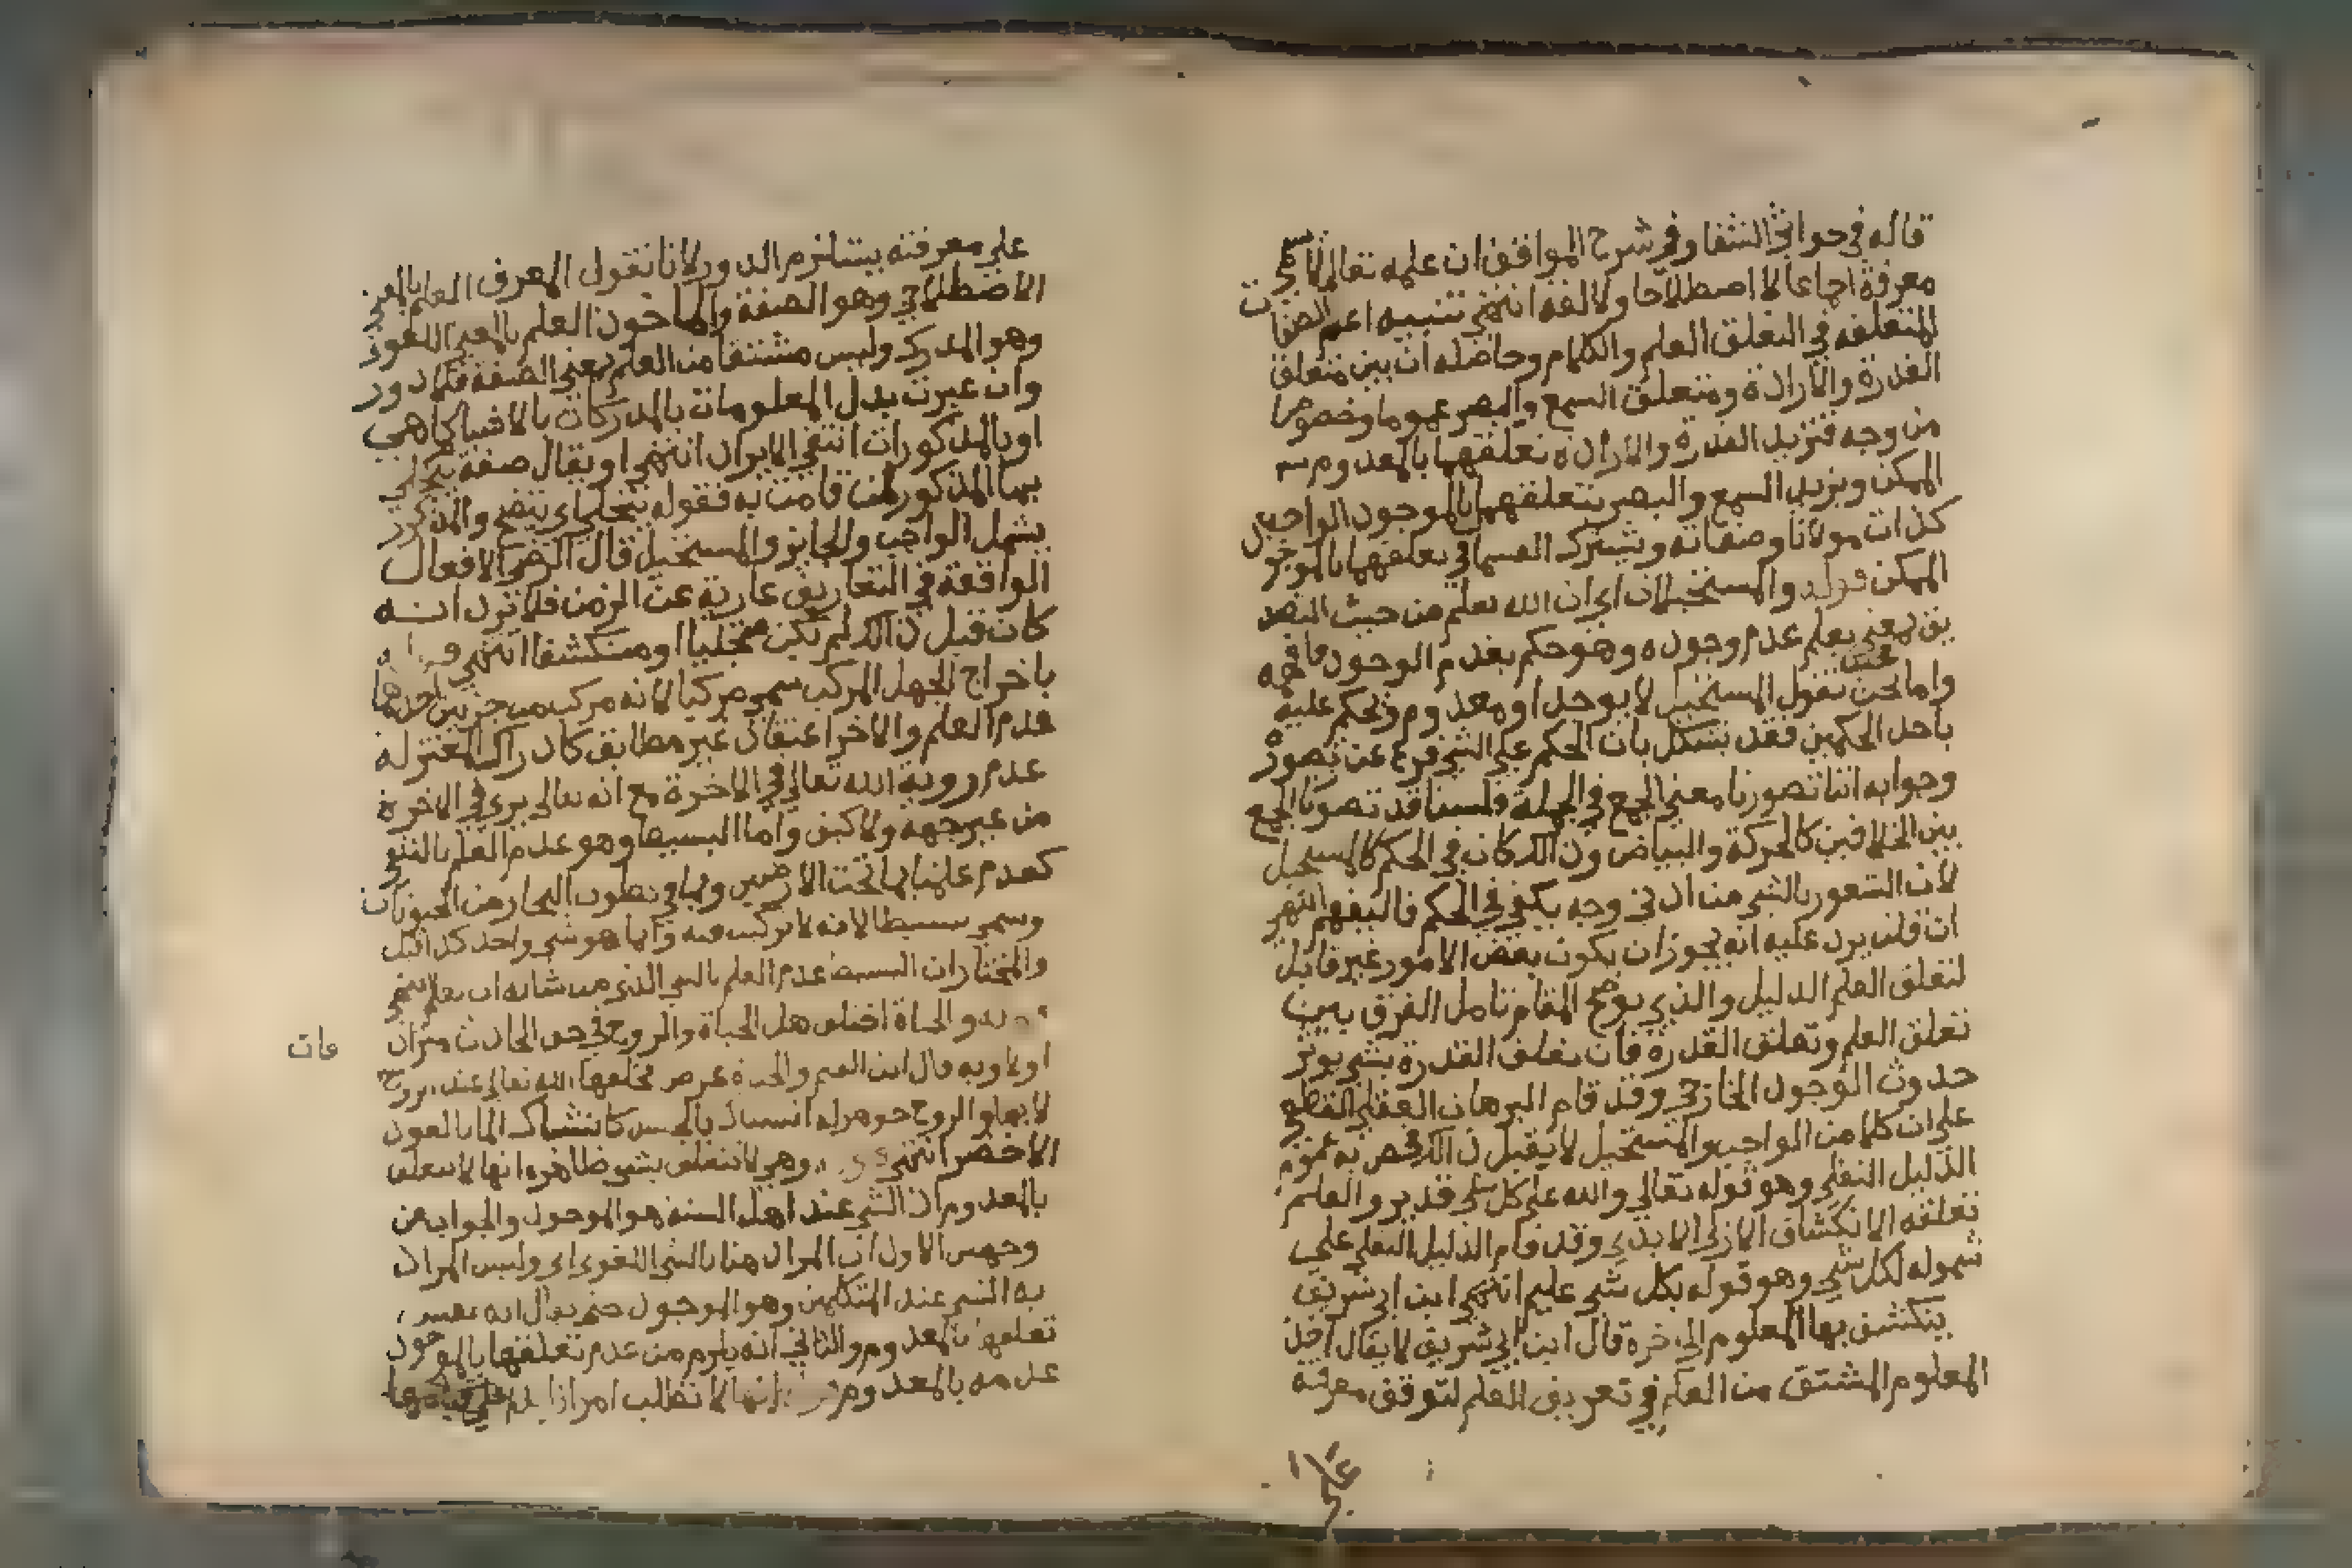 قاله في حواشي الشفا وفي شرح المواقف ان علمه تعالى لا يسمى
معرفة اجماعا لا اصطلاحا ولا لغة انتهى تنبيه اعم الصفات
المتعلقه في التعلق العلم والكلام وحاصله ان بين متعلق
القدرة والارادة ومتعلق السمع والبصر عموما وخصوصا
من وجه فتزيد القدرة والارادة بتعلقهما بالمعدوم
الممكن ويزيد السمع والبصر بتعلقهما بالموجود الواجب
كذات مولانا وصفاته ويشترك القسمان في تعلقهما بالموجود
الممكن قوله والمستحيلات اي ان الله يعلم من حيث التصد
يق بمعنى يعلم عدم وجوده وهو حكم بعدم الوجود
واما نحن نقول المستحيل لا يوجد او معدوم ونحكم عليه
باحد الحكمين فقد يشكل بان الحكم على الشي فرع عن تصوره
وجوابه اننا تصورنا معنى الجمع في الجملة فلسنا قد تصورنا الجمع
بين الخلافين كالحركة والبياض وذالك كان في الحكم كالمستحيل
لان الشعور بالشي من ادنى وجه يكفي في الحكم فاليفهم انتهى
ان قلت يرد عليه انه يجوز ان يكون بعض الامور غير قابل
لتعلق العلم الدليل والذي يوضح المقام تامل الفرق بين
تعلق العلم وتعلق القدرة فان تعلق القدرة بشي يوثر
حدوث الوجود الخارجي وقد قام البرهان العقلي القطعي
على ان كلا من الواجب والمستحيل لا يقبل ذالك فخص به عموم
الدليل النقلي وهو قوله تعالى والله على كل شي قدير والعلم
تعلقه الانكشاف الازلي الابدي وقد قام الدليل النقلي على
شموله لكل شي وهو قوله بكل شي عليم انتهى ابن ابي شريف
ينكشف بها المعلوم الى اخره قال ابن ابي شريف لا يقال اخذ
المعلوم المشتق من العلم في تعريف العلم لتوقف معرفته
على معرفته يستلزم الدور لانا نقول المعرف العلم بالمعنى
الاصطلاحي وهو الصفة والماخوذ العلم بالمعنى اللغوي
وهو المدرك وليس مشتقا من العلم بمعنى الصفة فلا دور
وان عبرت بدل المعلومات بالمدركات بالاشيا كما هي
او بالمذكورات انتفى الايراد انتهى او يقال صفة يتجلى
بها المذكور لمن قامت به فقوله يتجلى اي يتضح والمذكور
يشمل الواجب والجايز والمستحيل قال الرضي الافعال
الواقعة في التعاريف عارية عن الزمن فلا ترد انه
كان قبل ذالك لم يكن متجليا او منكشفا انتهى
باخراج الجهل المركب سمي مركبا لانه مركب من جزين احدهما
عدم العلم والاخر اعتقاد غير مطابق كادراك المعتزله
عدم روية الله تعالى في الاخرة مع انه تعالى يرى في الاخرة
من غير جهه ولا كيف واما البسيط وهو عدم العلم بالشي
كعدم علمنا بما تحت الارضين وبما في بطون البحار من الحيوانات
وسمي بسيطا لانه لا تركيب فيه وانما هو شي واحد كذا قيل
والمختار ان البسيط عدم العلم بالشي الذي من شانه ان يعلم انتهى
والحياة اختلف هل الحياة والروح في حق الحادث
اولا وبه قال ابن العم والحياة عرض يخلقها الله تعالى عند الروح
لا بها والروح جوهر له اشتباك بالجسد كاشتباك الما بالعود
الاخضر انتهى وهي لا تتعلق بشي ظاهره انها لا تتعلق
بالمعدوم اذ الشي عند اهل السنه هو الموجود والجواب من
وجهين الاول ان المراد هنا بالشي اللغوي اي وليس المراد
به الشي عند المتكلمين وهو الموجود حتى يقال انه
تعلقها بالمعدوم والثاني انه يلزم من عدم تعلقها بالموجود
عدمه بالمعدوم انها لا تطلب امرا زايدا على قيامها
عات